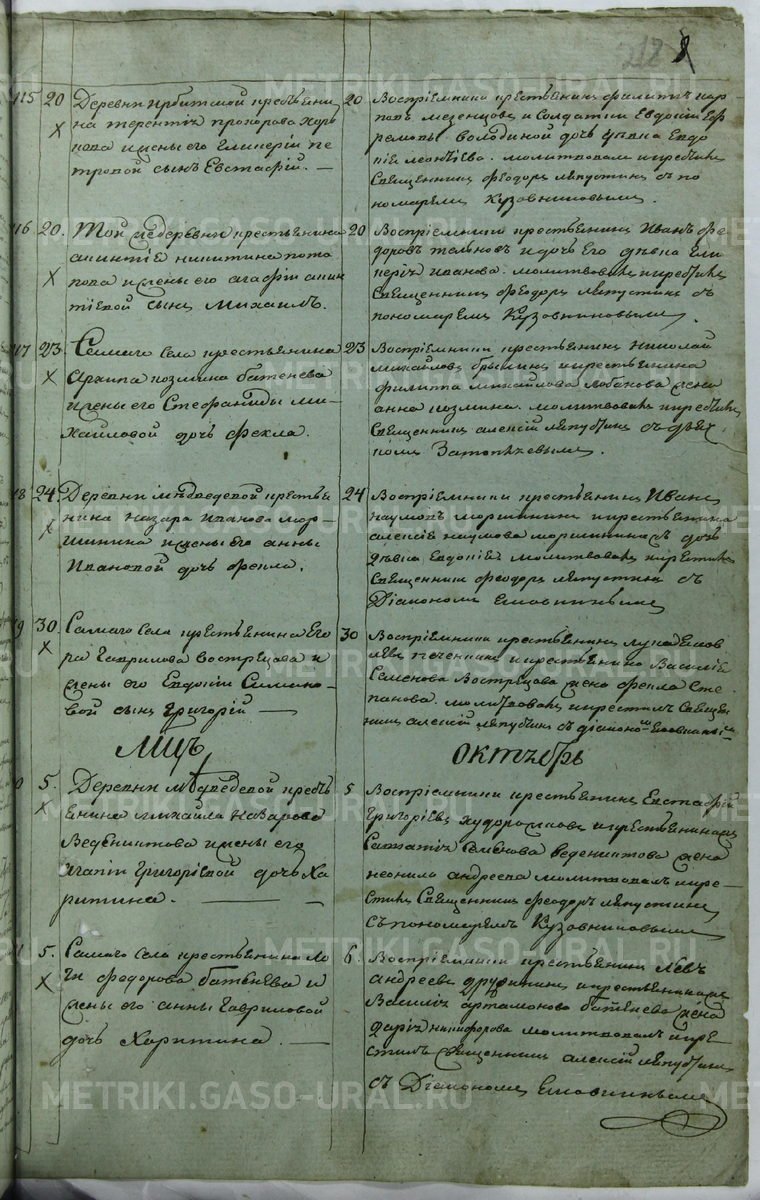 212
115 20 Деревни Ирбитской крестьяни
на Терентія Прохорова Хоро
пова и жены его Гликеріи Пе
тровой сынъ Евстафій. —
20 Воспріемники крестьянинъ Филиппъ Кар
повъ Мезенцовъ и Солдатки Евдокіи Еф
ремовы Володиной дочь дѣвка Евдо
кія Леонтіева. молитвовалъ и крестилъ
Священникъ Феодоръ Ляпустинъ съ по
номаремъ Кузовниковымъ.
116 20. Той же деревни крестьянина
Никитина Пота
пова и жены его Агафіи
сынъ Михаилъ.
20 Воспріемники крестьянинъ Иванъ Фе
доровъ и дочь Его дѣвка Гли
керія Иванова. молитвовалъ и крестилъ
Священникъ Феодоръ Ляпустинъ съ
пономаремъ Кузовниковымъ.
117 23. Самаго Села крестьянина
Архипа Козмина Батенева
и жены его Стефаниды Ми
хайловой дочь Фекла.
23 Воспріемники крестьянинъ Николай
Михайловъ и крестьянина
Филиппа Михайлова Лобанова жена
Анна Козмина. молитвовалъ и крестилъ
Священникъ Алексій Ляпустинъ съ дьяч
комъ
18 24. Деревни Мѣдведевой крестья
нина Назара Иванова Мор
шинина и жены его Анны
Ивановой дочь Фекла.
24 Воспріемники крестьянинъ Иванъ
Наумовъ Моршининъ и крестьянина
Алексія Наумова Моршинина дочь
дѣвка Евдокія молитвовалъ и крестилъ
Священникъ Феодоръ Ляпустинъ съ
Діакономъ
9 30. Самаго Села крестьянина Его
ра Гаврилова Вострецова и
жены его Евдокіи Симано
вой сынъ Григорій —
30 Воспріемники крестьянинъ Лука
Печенкинъ и крестьянина Василія
Семенова Вострецова жена Фекла Сте
панова. молитвовалъ и крестилъ Священ
никъ Алексій Ляпустинъ съ діакономъ
Мцъ Октябрь
0 5. Деревни Мѣдведевой кресть
янина Михайла Назарова
Ведениктова и жены его
Агапіи Григоріевой дочь Ха
ритина. —
5 Воспріемники крестьянинъ Евстафій
Григоріевъ Худорожковъ и крестьянина
Семенова Ведениктова жена
Неонила Андреева молитвовалъ и кре
стилъ Священникъ Феодоръ Ляпустинъ
съ пономаремъ Кузовниковымъ
1 5. Самаго Села крестьянина Ло
гина Федорова Батенева и
жены его Анны Гавриловой
дочь Харитина. —
6. Воспріемники крестьянинъ Левъ
Андреевъ Дружининъ и крестьянина
Василія Артамонова Батенева жена
Дарія Никифорова молитвовалъ и кре
стилъ Священникъ Алексій Ляпустинъ
съ Діакономъ
METRIKI.GASO-URAL.RU